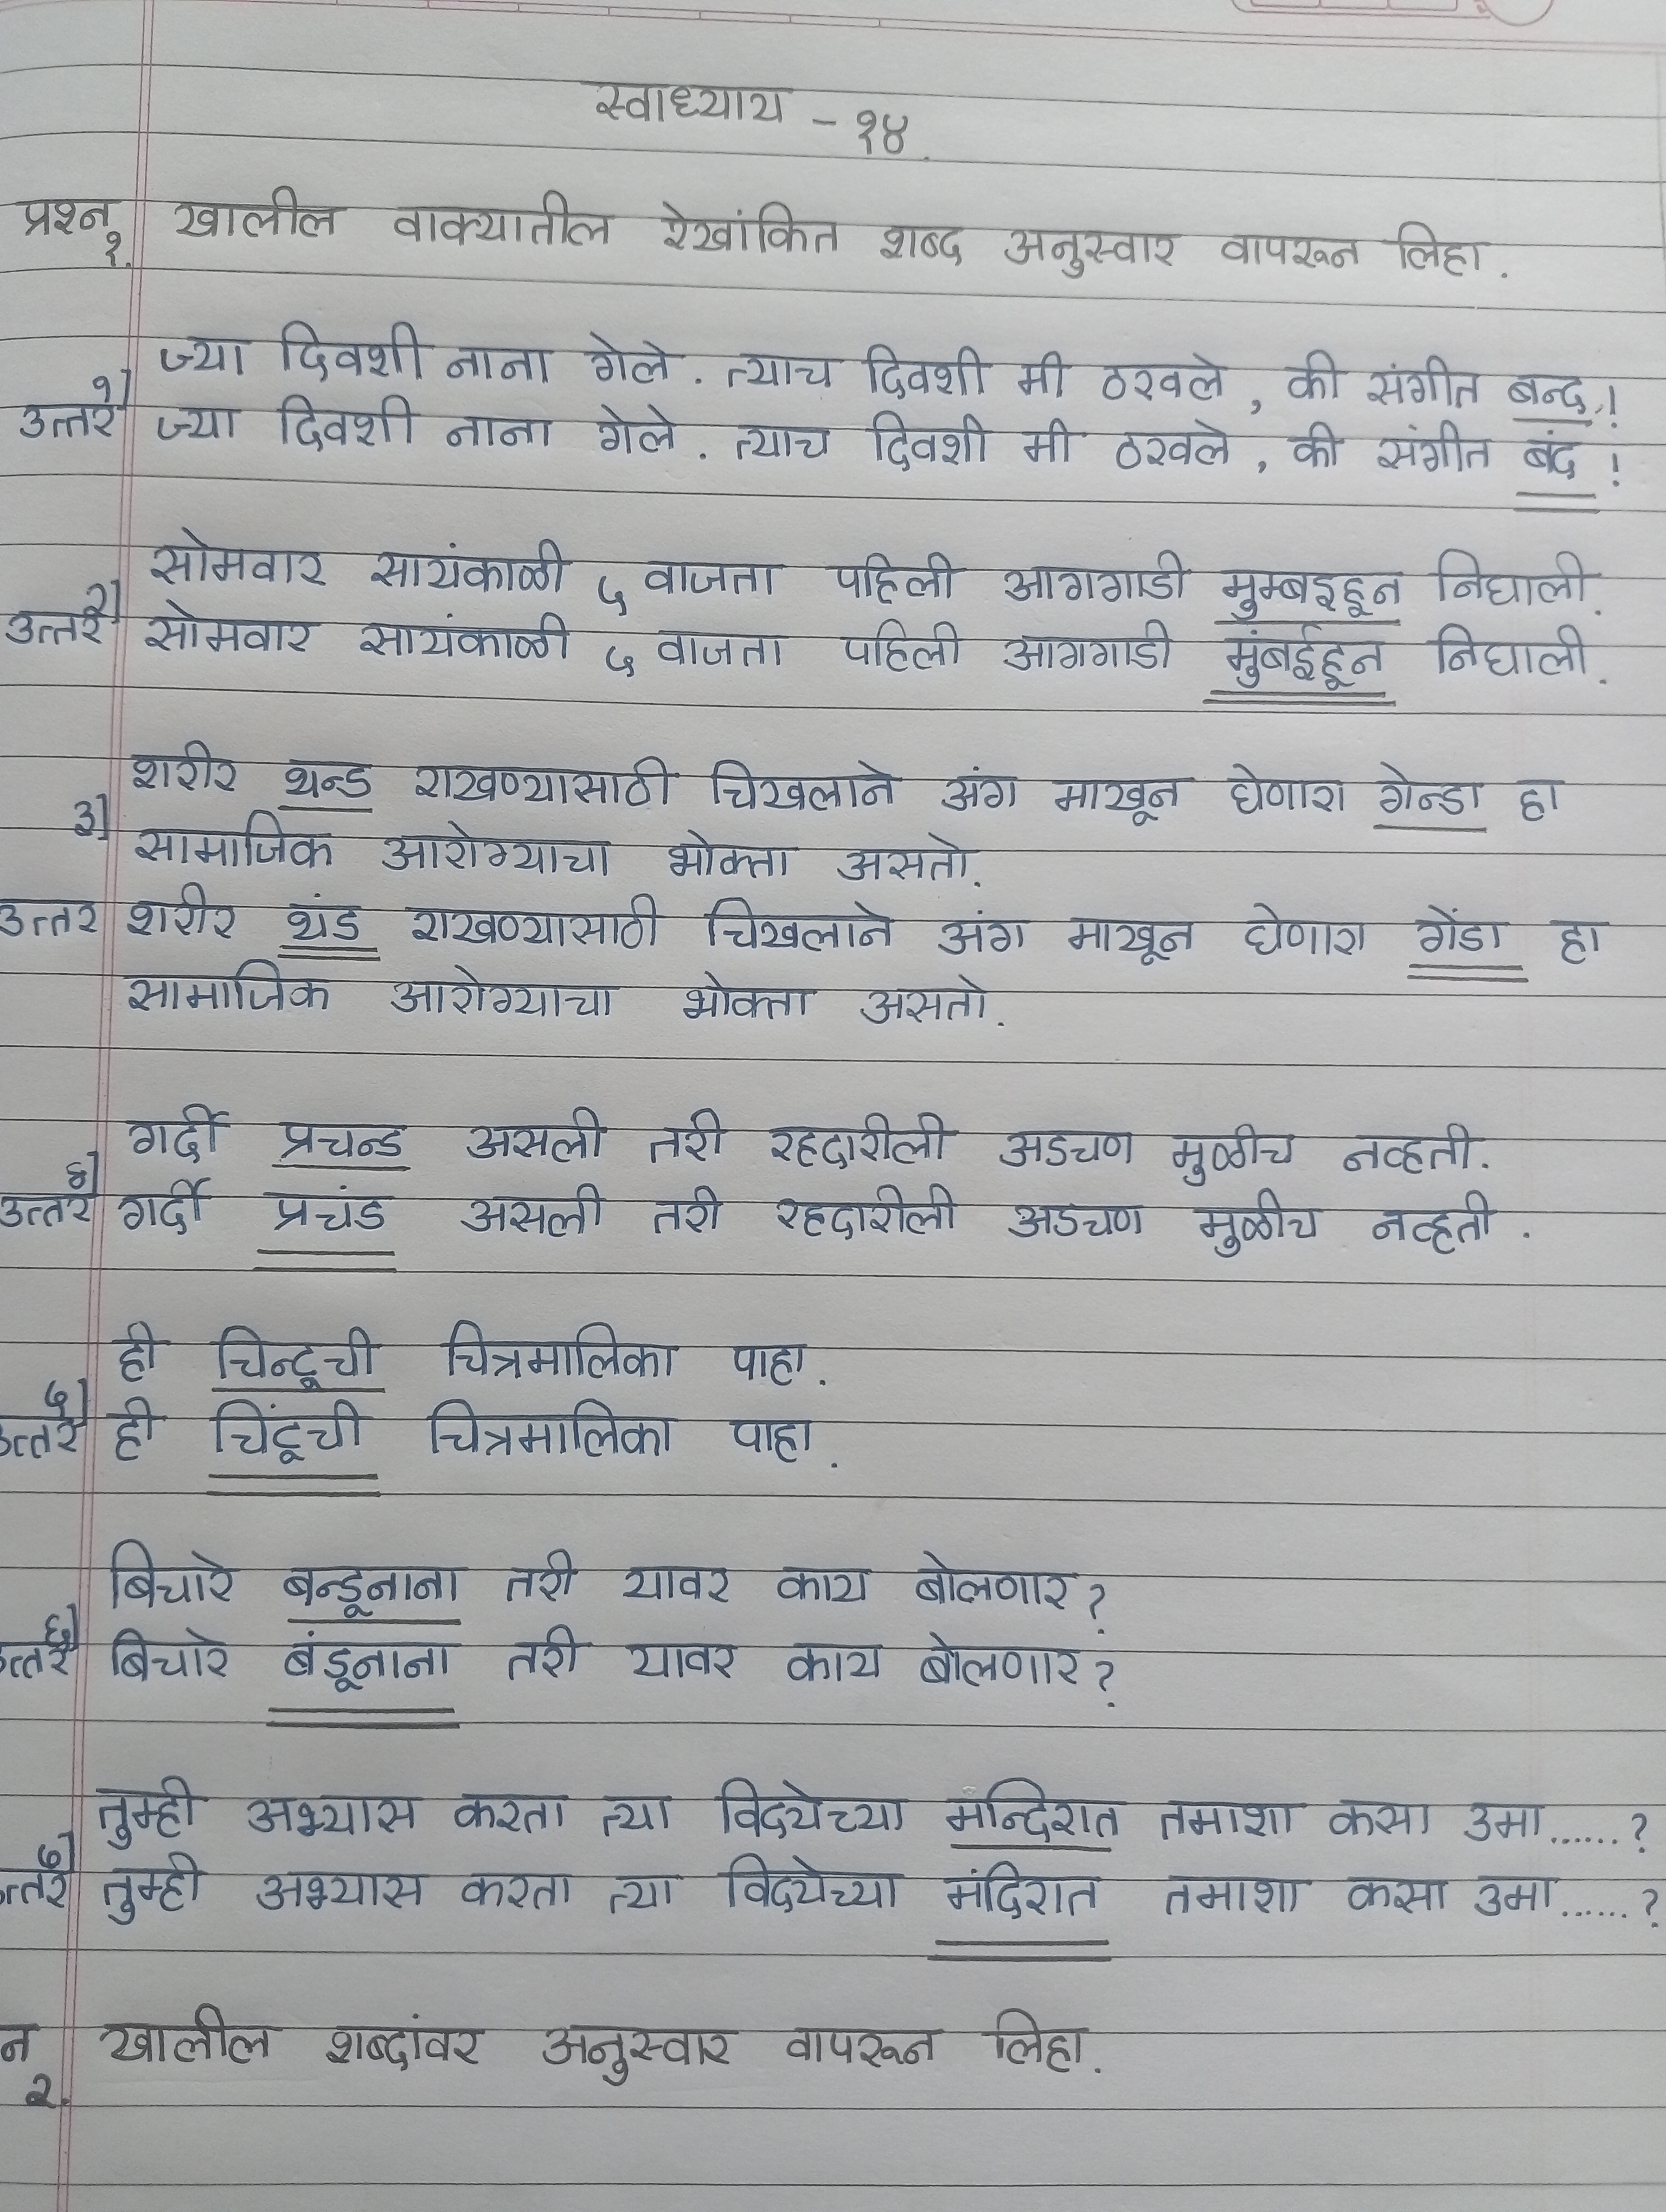 स्वाध्याय - १४.
प्रश्न १. खालील वाक्यातील रेखांकित शब्द अनुस्वार वापरून लिहा.
१] ज्या दिवशी नाना गेले. त्याच दिवशी मी ठरवले, की संगीत बन्द!
उत्तर ज्या दिवशी नाना गेले. त्याच दिवशी मी ठरवले, की संगीत बंद!
२] सोमवार सायंकाळी ५ वाजता पहिली आगगाडी मुम्बइहून निघाली.
उत्तर सोमवार सायंकाळी ५ वाजता पहिली आगगाडी मुंबईहून निघाली.
३] शरीर थन्ड राखण्यासाठी चिखलाने अंग माखून घेणारा गेन्डा हा
सामाजिक आरोग्याचा भोक्ता असतो.
उत्तर शरीर थंड राखण्यासाठी चिखलाने अंग माखून घेणारा गेंडा हा
सामाजिक आरोग्याचा भोक्ता असतो.
४] गर्दी प्रचन्ड असली तरी रहदारीली अडचण मुळीच नव्हती.
उत्तर गर्दी प्रचंड असली तरी रहदारीली अडचण मुळीच नव्हती.
५] ही चिन्टूची चित्रमालिका पाहा.
उत्तर ही चिंटूची चित्रमालिका पाहा.
६] बिचारे बन्डूनाना तरी यावर काय बोलणार?
उत्तर बिचारे बंडूनाना तरी यावर काय बोलणार?
७] तुम्ही अभ्यास करता त्या विद्येच्या मन्दिरात तमाशा कसा उमा......?
त्तर तुम्ही अभ्यास करता त्या विद्येच्या मंदिरात तमाशा कसा उमा......?
न २. खालील शब्दांवर अनुस्वार वापरून लिहा.